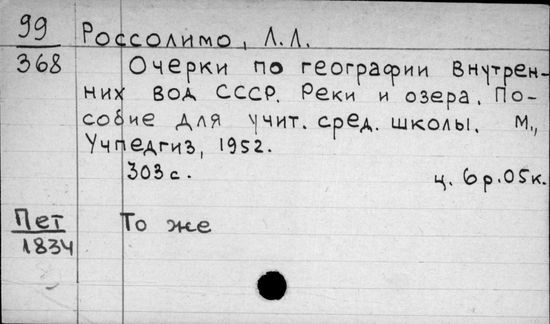 99 Россолимо, Л.Л.
368 Очерки по географии внутрен-
них вод СССР. Реки и озера. По-
собие для учит. сред. школы. М.,
Учпедгиз, 1952.
303 с. ц. 6 р. 05 к.
Пет То же
1834